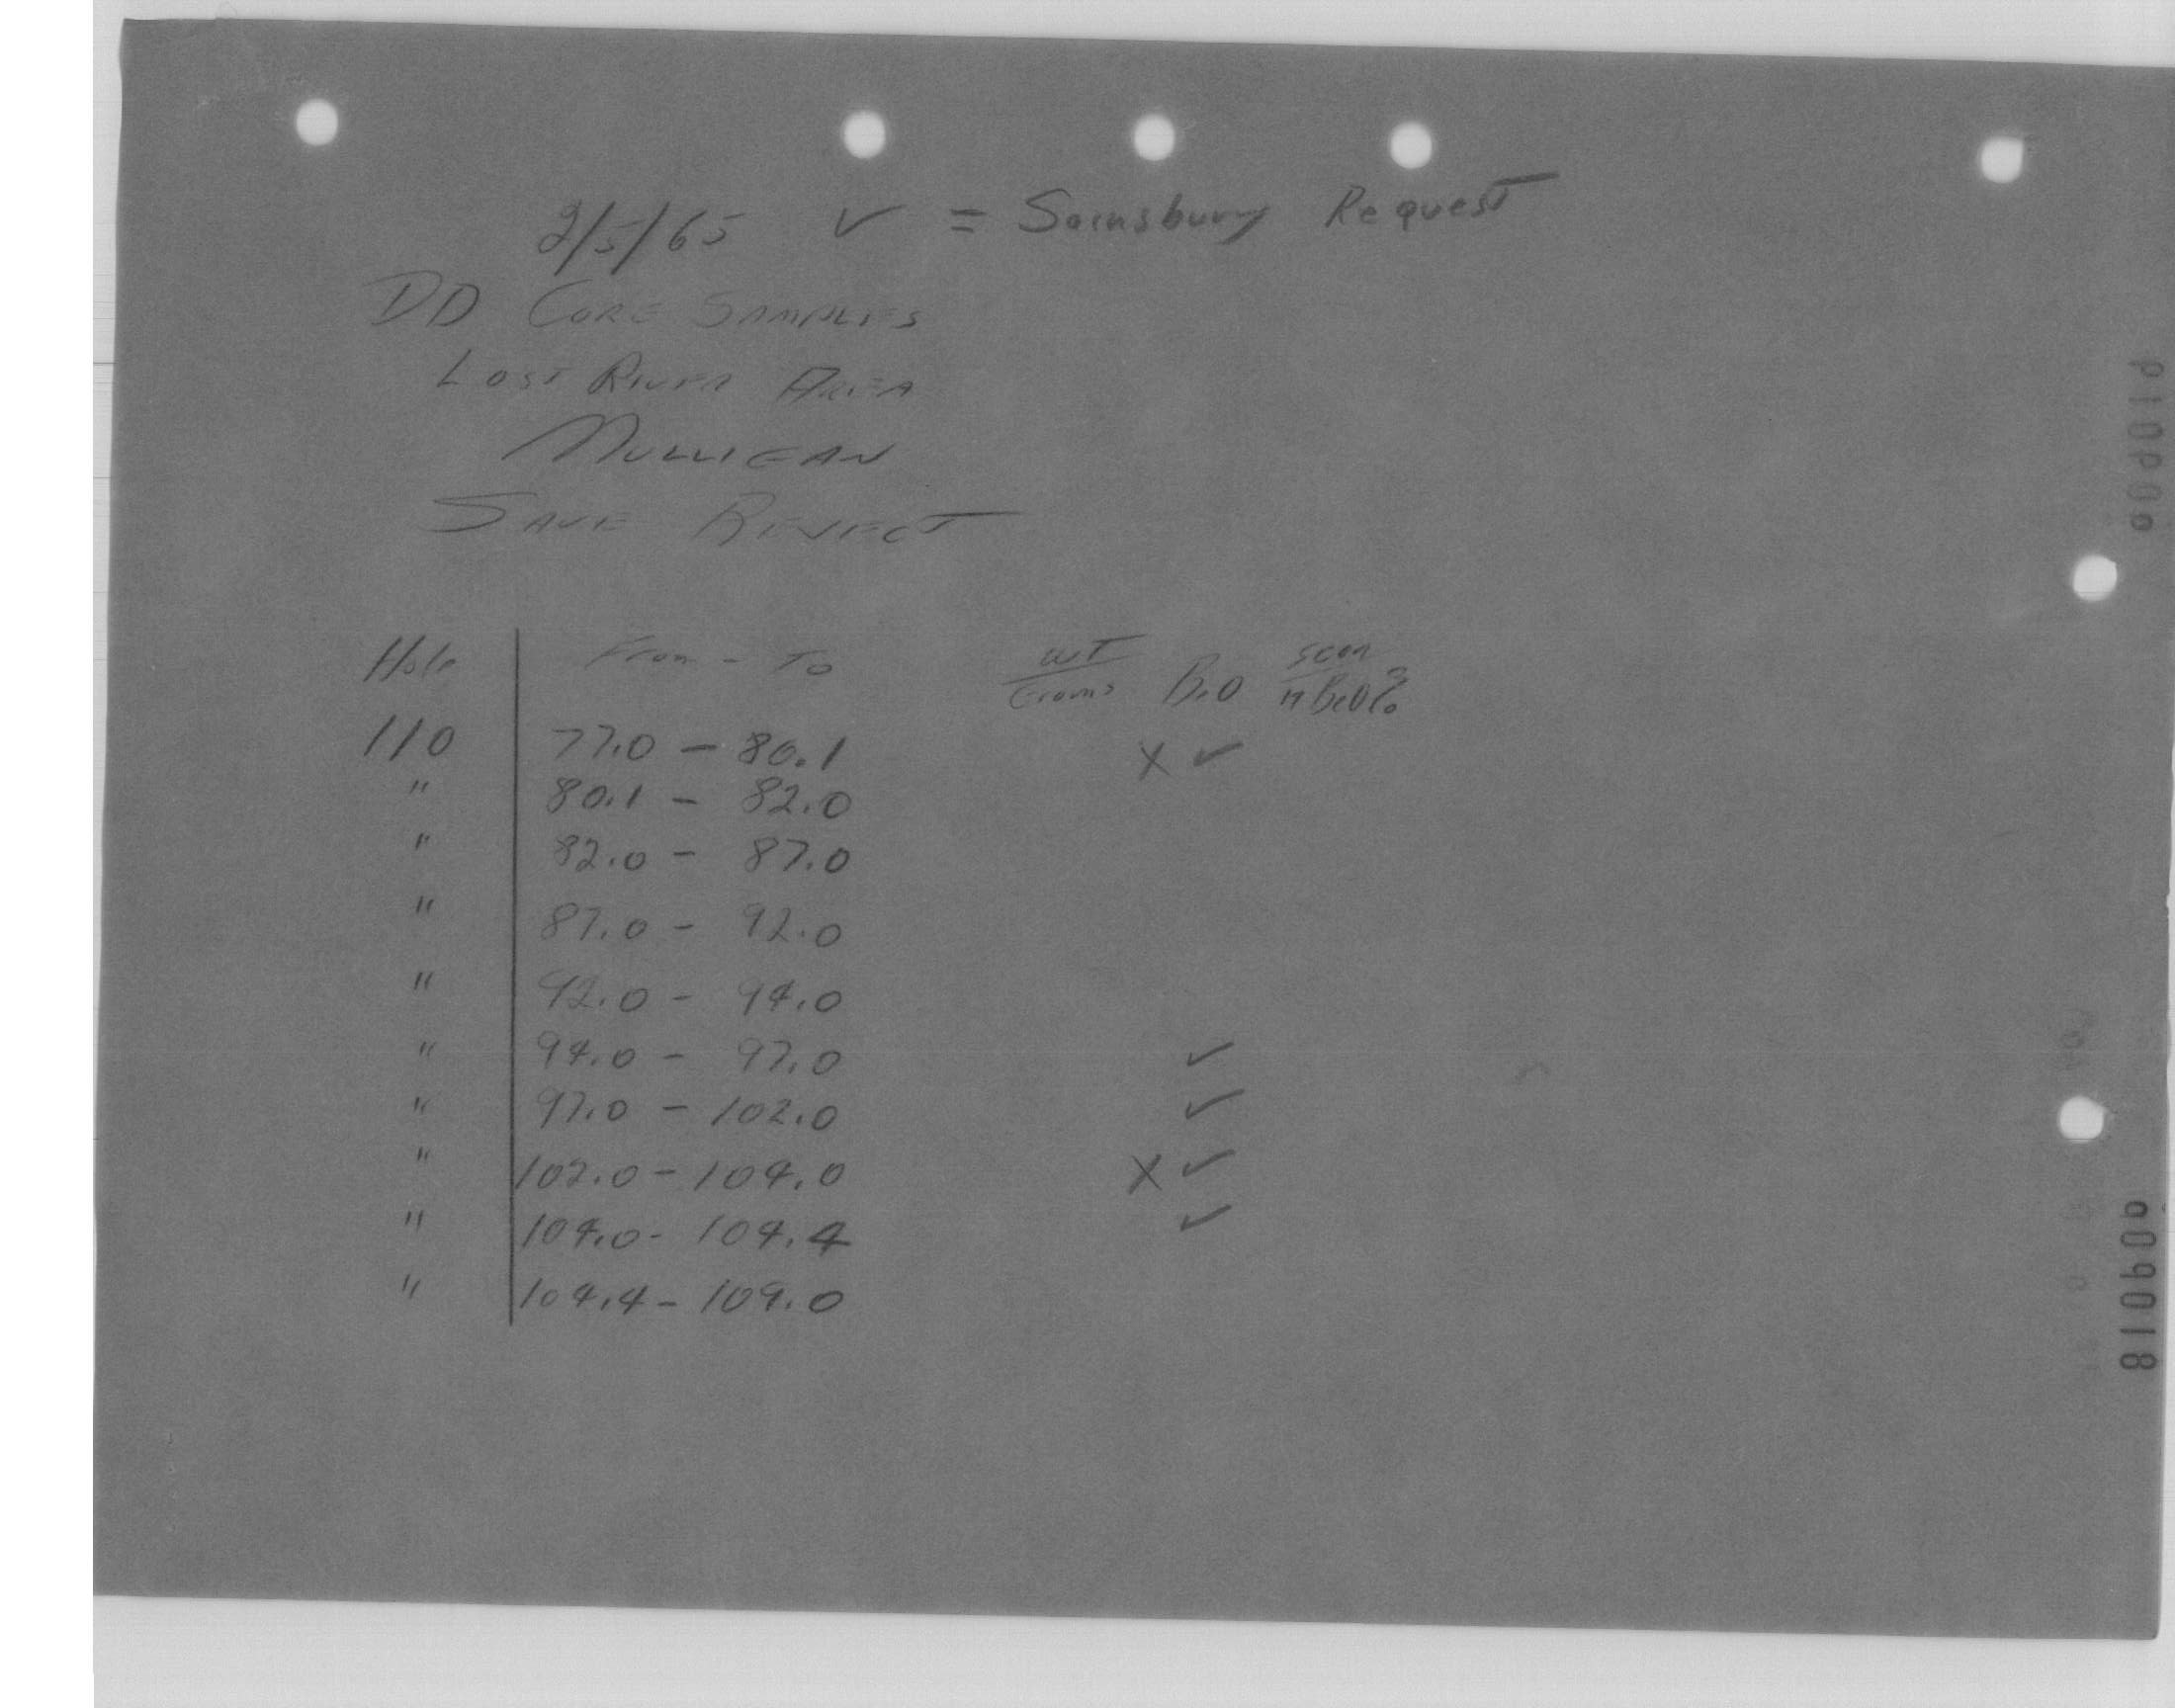 2/5/65 ✓ = Sainsbury Request
DD CORE SAMPLES
LOST RIVER AREA
MULLIGAN
SAVE REJECT
Hole From - To WT Grams BeO scan BeO?
110 77.0 - 80.1 X ✓
" 80.1 - 82.0
" 82.0 - 87.0
" 87.0 - 92.0
" 92.0 - 94.0
" 94.0 - 97.0 ✓
" 97.0 - 102.0 ✓
" 102.0 - 104.0 X ✓
" 104.0 - 104.4 ✓
" 104.4 - 109.0